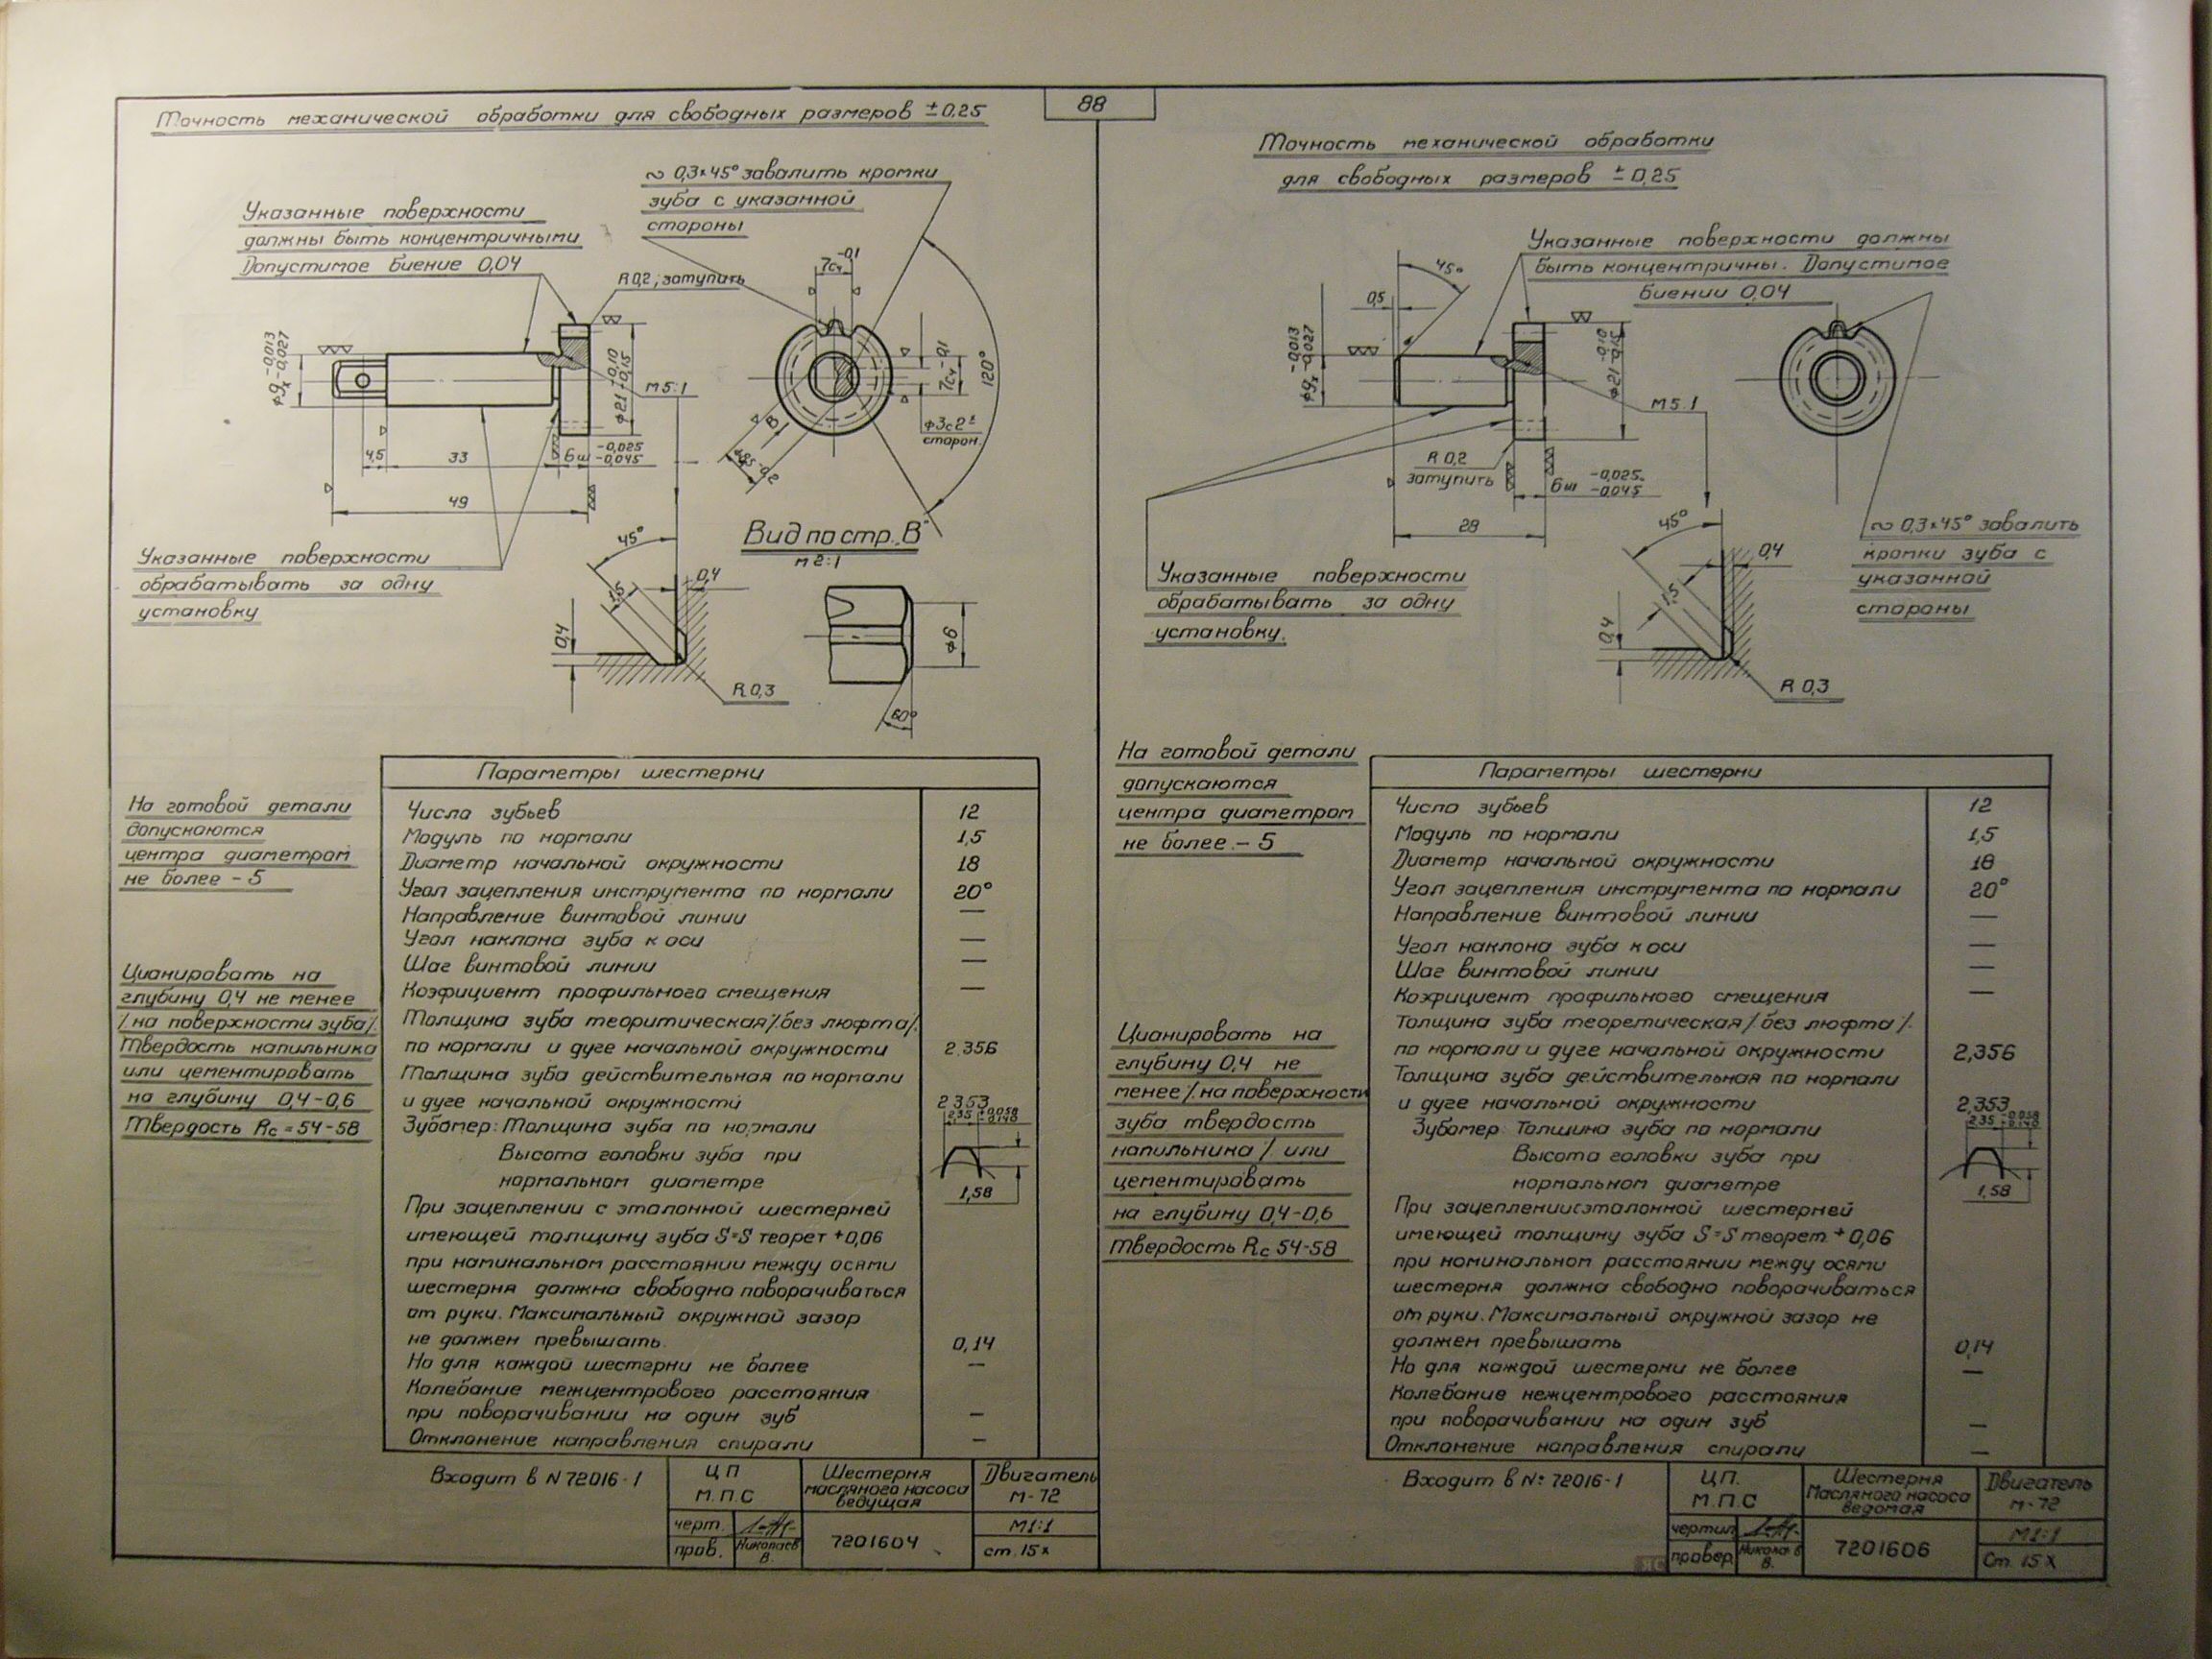 88
Точность механической обработки для свободных размеров ± 0,25
∾ 0,3×45° завалить кромки
зуба с указанной
стороны
Указанные поверхности
должны быть концентричными
Допустимое биение 0,04
R 0,2; затупить
7с4 -0,1
120°
7с4 -0,1
ф3 с 2х
сторон.
ф9х -0,013 -0,027
ф21 -0,10 -0,15
М 5:1
В
4,5
33
6ш -0,025 -0,045
49
Вид по стр. „В"
м 2:1
45°
0,4
1,5
0,4
R 0,3
ф6
60°
Указанные поверхности
обрабатывать за одну
установку
На готовой детали
допускаются
центра диаметром
не более - 5
Цианировать на
глубину 0,4 не менее
/.на поверхности зуба/.
Твердость напильника
или цементировать
на глубину 0,4-0,6
Твердость Rc = 54-58
Параметры шестерни
Число зубьев 12
Модуль по нормали 1,5
Диаметр начальной окружности 18
Угол зацепления инструмента по нормали 20°
Направление винтовой линии —
Угол наклона зуба к оси —
Шаг винтовой линии —
Коэфициент профильного смещения —
Толщина зуба теоритическая/.без люфта/.
по нормали и дуге начальной окружности 2.356
Толщина зуба действительная по нормали
и дуге начальной окружности 2,353
Зубомер: Толщина зуба по нормали 2,35 -0,058 -0,140
Высота головки зуба при
нормальном диаметре 1,58
При зацеплении с эталонной шестерней
имеющей толщину зуба S=S теорет +0,06
при наминальном расстоянии между осями
шестерня должна свободно поворачиваться
от руки. Максимальный окружной зазор
не должен превышать. 0,14
Но для каждой шестерни не более —
Колебание межцентрового расстояния
при поворачивании на один зуб —
Отклонение направления спирали —
Входит в N 72016-1
ЦП
М.П.С
Шестерня
масляного насоса
ведущая
Двигатель
М-72
черт.
пров.
Николаев
В.
7201604
М1:1
ст. 15х
Точность механической обработки
для свободных размеров ± 0,25
Указанные поверхности должны
быть концентричны. Допустимое
биении 0,04
45°
0,5
ф9х -0,013 -0,027
ф21 -0,10 -0,15
М 5:1
R 0,2
затупить
6ш -0,025 -0,045
28
∾ 0,3×45° завалить
кромки зуба с
указанной
стороны
Указанные поверхности
обрабатывать за одну
установку.
45°
0,4
1,5
0,4
R 0,3
На готовой детали
допускаются
центра диаметром
не более - 5
Цианировать на
глубину 0,4 не
менее /.на поверхности
зуба твердость
напильника /. или
цементировать
на глубину 0,4-0,6
Твердость Rc 54-58
Параметры шестерни
Число зубьев 12
Модуль по нормали 1,5
Диаметр начальной окружности 18
Угол зацепления инструмента по нормали 20°
Направление винтовой линии —
Угол наклона зуба к оси —
Шаг винтовой линии —
Коэфициент профильного смещения —
Толщина зуба теоретическая /.без люфта /.
по нормали и дуге начальной окружности 2,356
Толщина зуба действительная по нормали
и дуге начальной окружности 2,353
Зубомер: Толщина зуба по нормали 2,35 -0,058 -0,140
Высота головки зуба при
нормальном диаметре 1,58
При зацеплении с эталонной шестерней
имеющей толщину зуба S=S теорет + 0,06
при номинальном расстоянии между осями
шестерня должна свободно поворачиваться
от руки. Максимальный окружной зазор не
должен превышать 0,14
Но для каждой шестерни не более —
Колебание нежцентрового расстояния
при поворачивании на один зуб —
Отклонение направления спирали —
Входит в N: 72016-1
ЦП.
М.П.С
Шестерня
Масляного насоса
ведомая
Двигатель
м-72
чертил
провер.
В.
7201606
М1:1
Ст. 15 Х
ЯС